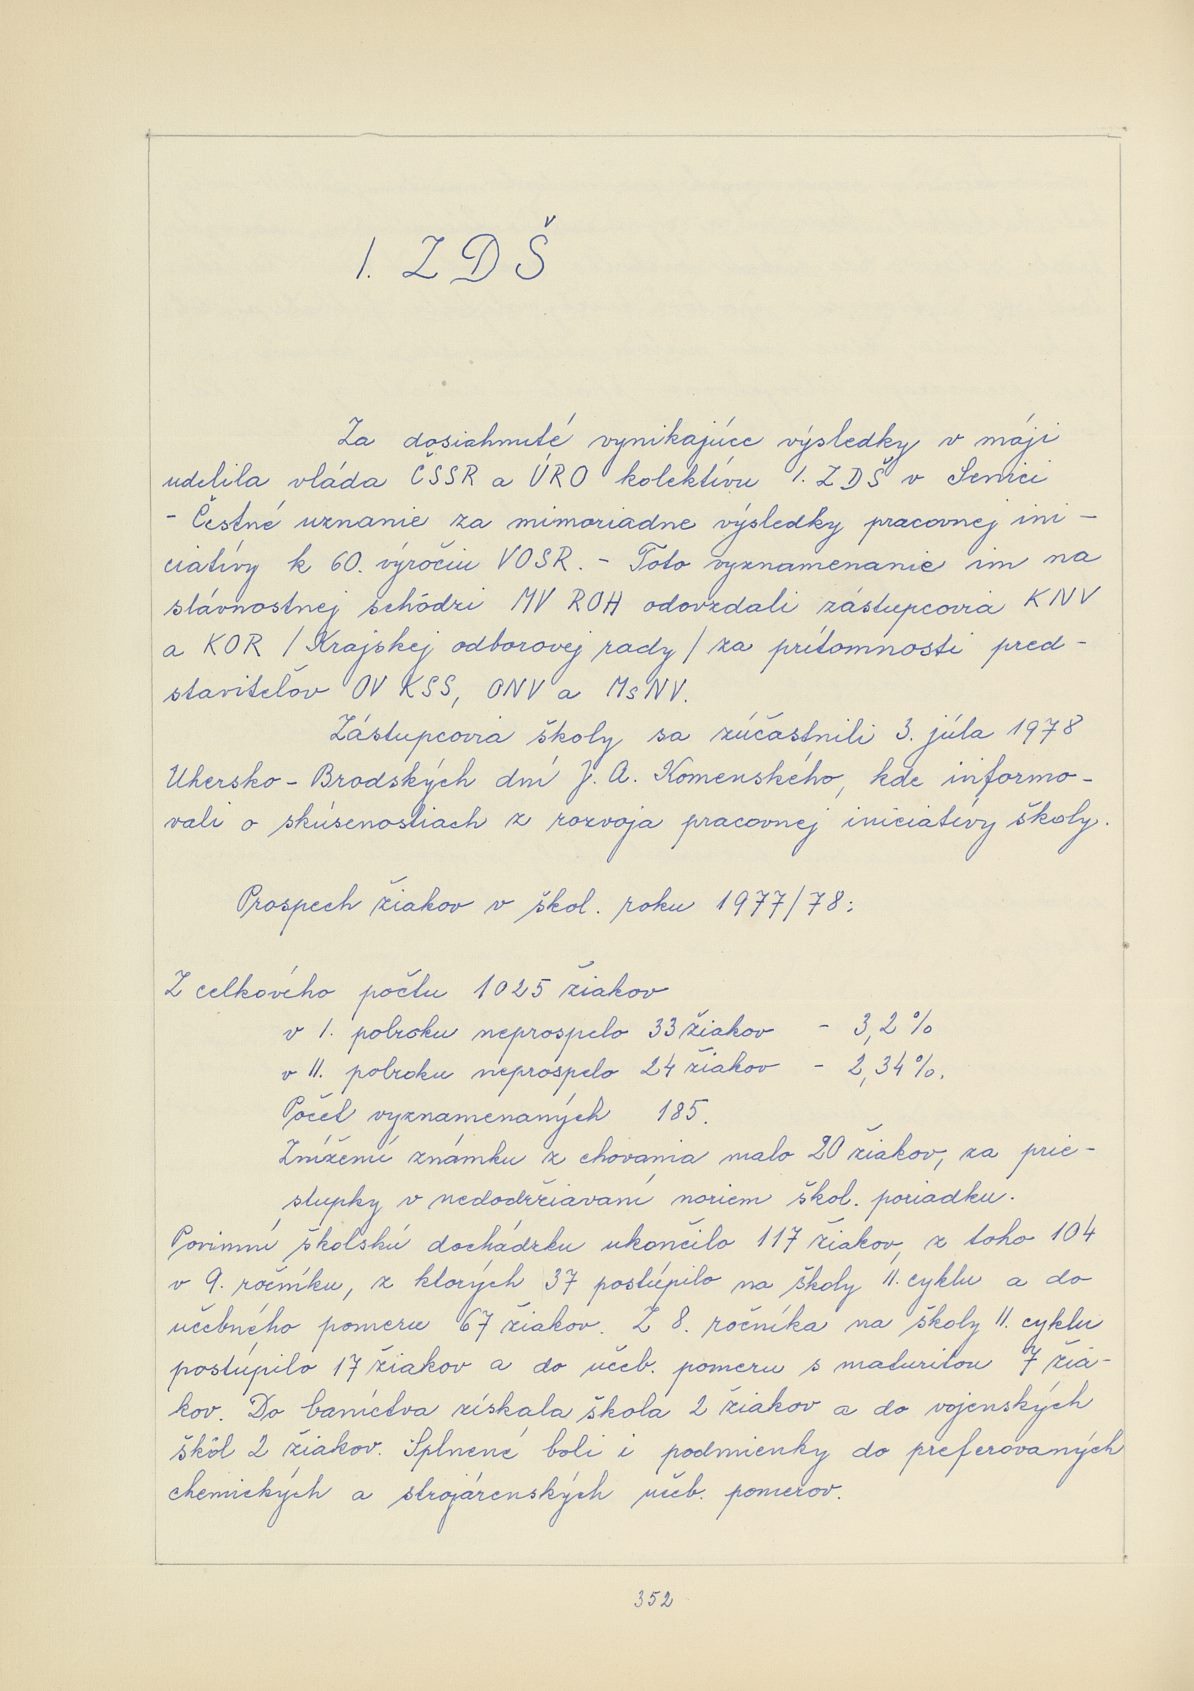 1. ZDŠ
Za dosiahnuté vynikajúce výsledky v máji
udelila vláda ČSSR a ÚRO kolektívu 1. ZDŠ v Senici
- Čestné uznanie za mimoriadne výsledky pracovnej ini-
ciatívy k 60. výročiu VOSR. - Toto vyznamenanie im na
slávnostnej schôdzi MV ROH odovzdali zástupcovia KNV
a KOR /Krajskej odborovej rady/ za prítomnosti pred-
staviteľov OV KSS, ONV a MsNV.
Zástupcovia školy sa zúčastnili 3. júla 1978
Uhersko-Brodských dní J. A. Komenského, kde informo-
vali o skúsenostiach z rozvoja pracovnej iniciatívy školy.
Prospech žiakov v škol. roku 1977/78:
Z celkového počtu 1025 žiakov
v I. polroku neprospelo 33 žiakov - 3,2 %
v II. polroku neprospelo 24 žiakov - 2,34 %.
Počet vyznamenaných 185.
Zníženú známku z chovania malo 20 žiakov, za prie-
stupky v nedodržiavaní noriem škol. poriadku.
Povinnú školskú dochádzku ukončilo 117 žiakov, z toho 104
v 9. ročníku, z ktorých 37 postúpilo na školy II. cyklu a do
učebného pomeru 67 žiakov. Z 8. ročníka na školy II. cyklu
postúpilo 17 žiakov a do učeb. pomeru s maturitou 7 žia-
kov. Do baníctva získala škola 2 žiakov a do vojenských
škôl 2 žiakov. Splnené boli i podmienky do preferovaných
chemických a strojárenských učeb. pomerov.
352